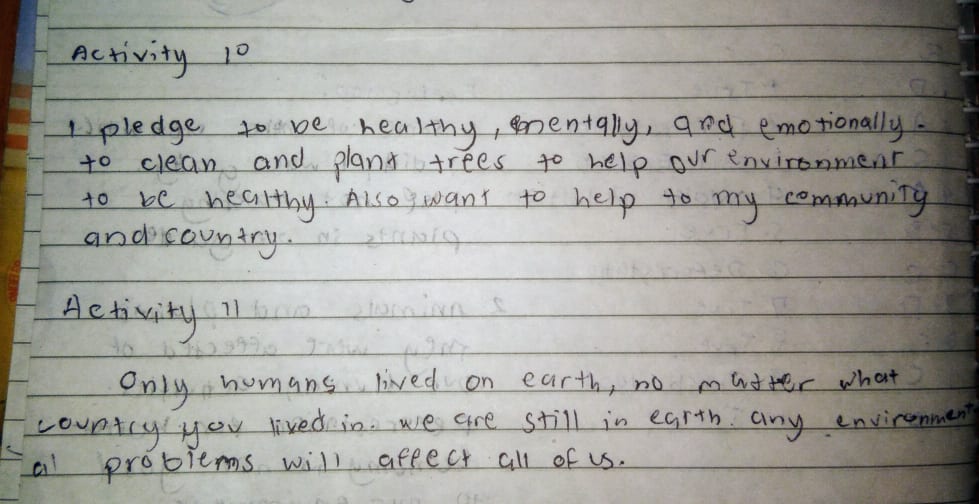 Activity 10
I pledge to be healthy, mentally, and emotionally.
to clean and plant trees to help our environment
to be healthy. Also want to help to my community
and country.
Activity 11
Only humans lived on earth, no matter what
country you lived in. we are still in earth. any environment
al problems will affect all of us.